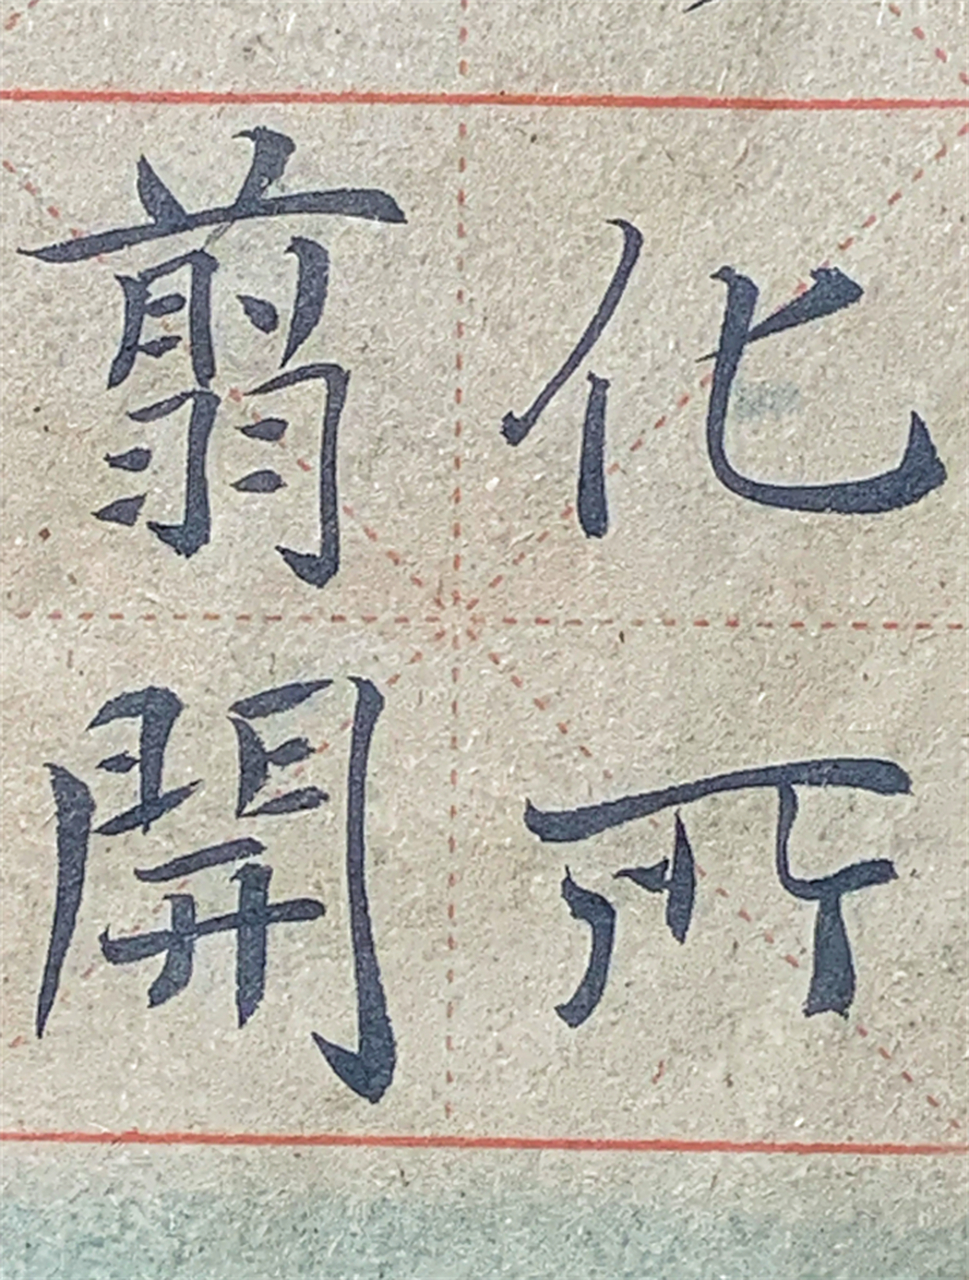 化所
翦開